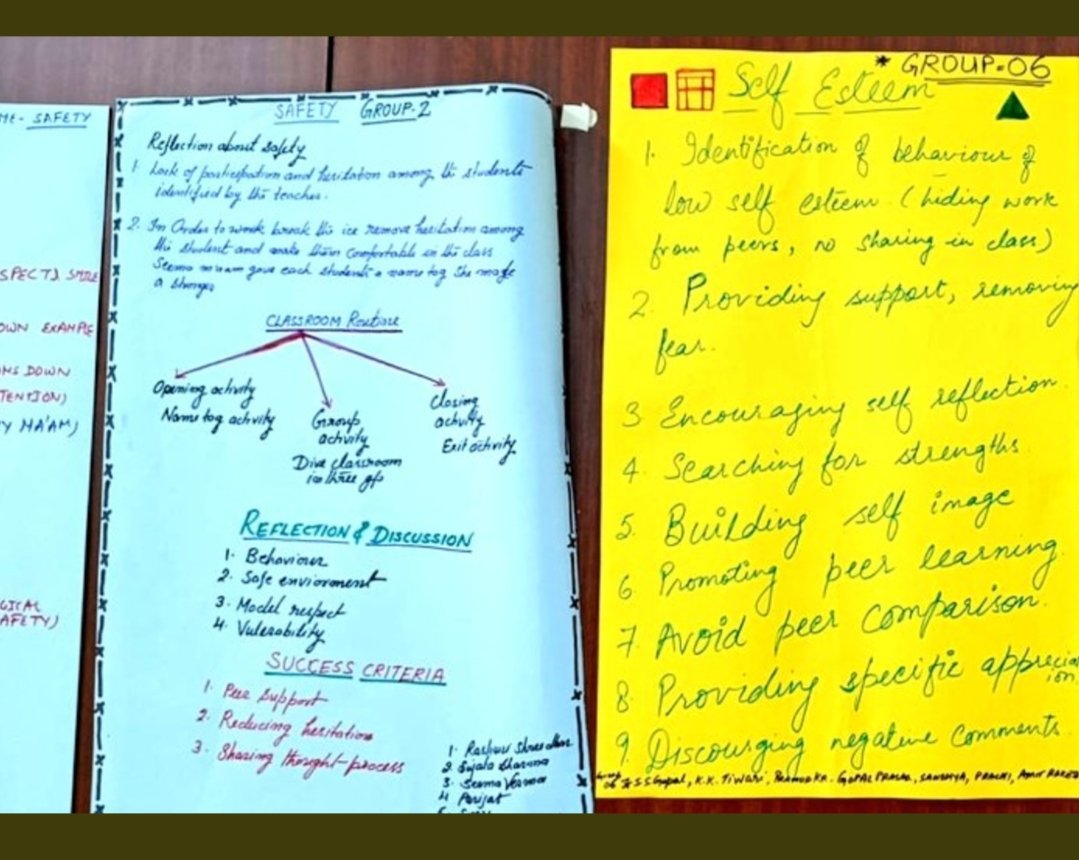 ME- SAFETY
SPECT). SMILE
OWN EXAMPLE
NS DOWN
TENTION)
Y MA'AM)
GICAL
AFETY)
SAFETY GROUP-2
Reflection about safety
1. Lack of participation and hesitation among the students
identified by the teacher.
2. In Order to break the ice remove hesitation among
the student and make them comfortable in the class
Seema ma'am gave each students a name tag she made
a
CLASSROOM Routine
Opening activity
Name tag activity
Group
activity
Dive classroom
in three gps
Closing
activity
Exit activity.
REFLECTION & DISCUSSION
1. Behaviour
2. Safe enviornment
3. Model respect
4. Vulerability
SUCCESS CRITERIA
1. Peer support
2. Reducing hesitation
3. Sharing thought-process
1.
2. Sujata Sharma
3. Seema Verma
4. Parijat
* GROUP-06
Self Esteem
1. Identification of behaviour of
low self esteem (hiding work
from peers, no sharing in class)
2. Providing support, removing
fear.
3 Encouraging self reflection.
4. Searching for strengths.
5. Building self image
6 Promoting peer learning
7. Avoid peer comparison.
8 Providing specific appreciation.
9. Discourging negative comments.
06 S.S Gopal, K.K. Tiwari, GOPAL PRASAD, PRACHI, AMIT